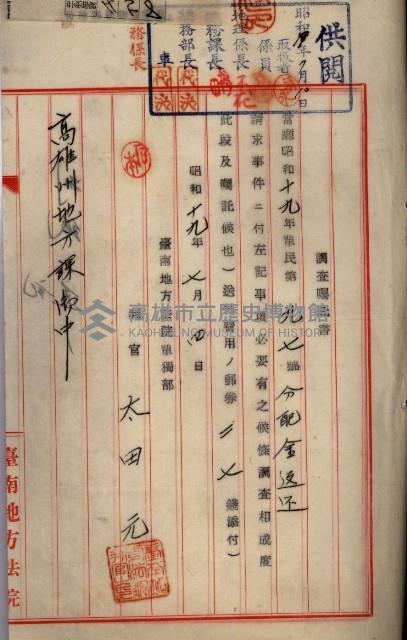 供閲
昭和 年 月 日
取扱者
係員
地理係長
務課長
務部長
務係長
調査囑託書
當廳昭和十九年單民第九七號分配金返還
請求事件ニ付左記事項必要有之候條調査相成度
此段及囑託候也）送附費用ノ郵券三七錢添付）
昭和十九年七月四日
臺南地方法院單獨部
判官 太田元
高雄州地方課御中
臺南地方法院
高雄市立歷史博物館
KAOHSIUNG MUSEUM OF HISTORY